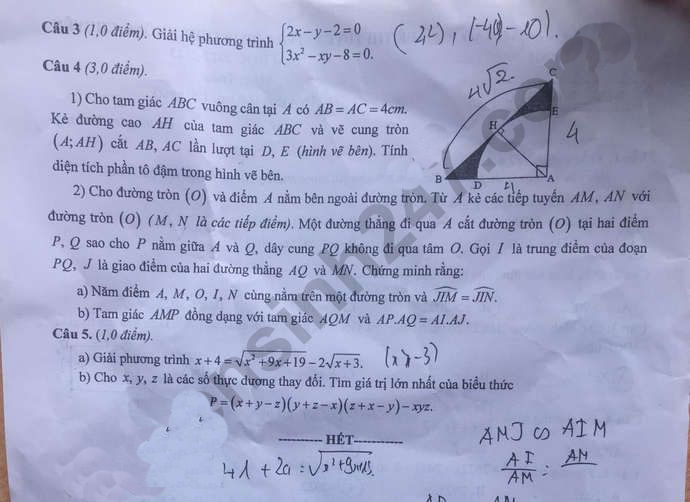 Câu 3 (1,0 điểm). Giải hệ phương trình { 2x − y − 2 = 0
3x² − xy − 8 = 0.
Câu 4 (3,0 điểm).
4√2.
1) Cho tam giác ABC vuông cân tại A có AB = AC = 4cm.
Kẻ đường cao AH của tam giác ABC và vẽ cung tròn
(A; AH) cắt AB, AC lần lượt tại D, E (hình vẽ bên). Tính
diện tích phần tô đậm trong hình vẽ bên.
C
E
H
4
B D A
4
2) Cho đường tròn (O) và điểm A nằm bên ngoài đường tròn. Từ A kẻ các tiếp tuyến AM, AN với
đường tròn (O) (M, N là các tiếp điểm). Một đường thẳng đi qua A cắt đường tròn (O) tại hai điểm
P, Q sao cho P nằm giữa A và Q, dây cung PQ không đi qua tâm O. Gọi I là trung điểm của đoạn
PQ, J là giao điểm của hai đường thẳng AQ và MN. Chứng minh rằng:
a) Năm điểm A, M, O, I, N cùng nằm trên một đường tròn và JIM = JIN.
b) Tam giác AMP đồng dạng với tam giác AQM và AP.AQ = AI.AJ.
Câu 5. (1,0 điểm).
a) Giải phương trình x + 4 = √x² + 9x + 19 − 2√x + 3. (x ≥ −3)
b) Cho x, y, z là các số thực dương thay đổi. Tìm giá trị lớn nhất của biểu thức
P = (x + y − z)(y + z − x)(z + x − y) − xyz.
---------- HẾT----------
AMJ ∽ AIM
AI
AM